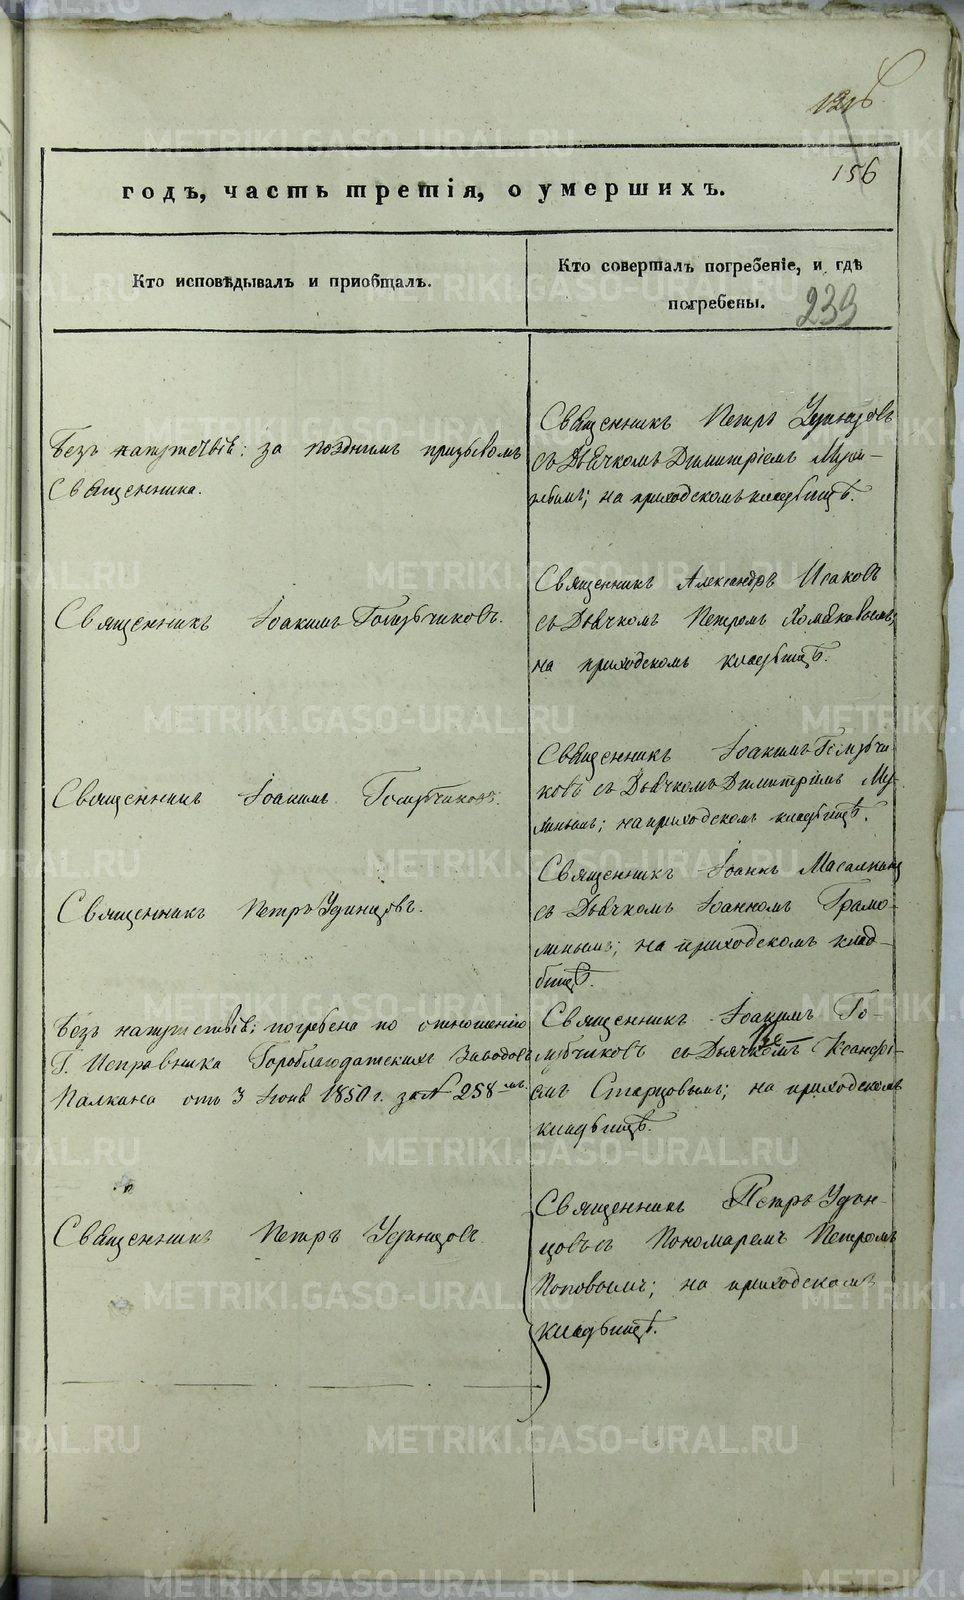 156
годъ, часть третія, о умершихъ.
Кто исповѣдывалъ и приобщалъ.
Кто совершалъ погребеніе, и гдѣ
погребены.
239
Безъ напутствія: за позднимъ призывомъ
Священника.
Священникъ Петръ Удинцовъ
съ Дьячкомъ Димитріемъ
на приходскомъ кладбищѣ.
Священникъ Іоакимъ Голубчиковъ.
Священникъ Александръ Исаковъ
съ Дьячкомъ Петромъ Хомяковымъ;
на приходскомъ кладбищѣ.
Священникъ Іоакимъ Голубчиковъ.
Священникъ Іоакимъ Голубчи-
ковъ съ Дьячкомъ Димитріемъ
на приходскомъ кладбищѣ.
Священникъ Петръ Удинцовъ.
Священникъ Іоаннъ
съ Дьячкомъ Іоанномъ Грамо-
линымъ; на приходскомъ клад-
бищѣ.
Безъ напутствія; погребена по отношенію
Г. Исправника Гороблагодатскихъ Заводовъ
Палкина отъ 3 Іюня 1850 г. за № 258-мъ.
Священникъ Іоакимъ Го-
лубчиковъ съ Дьячкомъ Ксанфі-
емъ Старцовымъ; на приходскомъ
кладбищѣ.
Священникъ Петръ Удинцовъ.
Священникъ Петръ Удин-
цовъ съ Пономаремъ Петромъ
Поповымъ; на приходскомъ
кладбищѣ.
METRIKI.GASO-URAL.RU